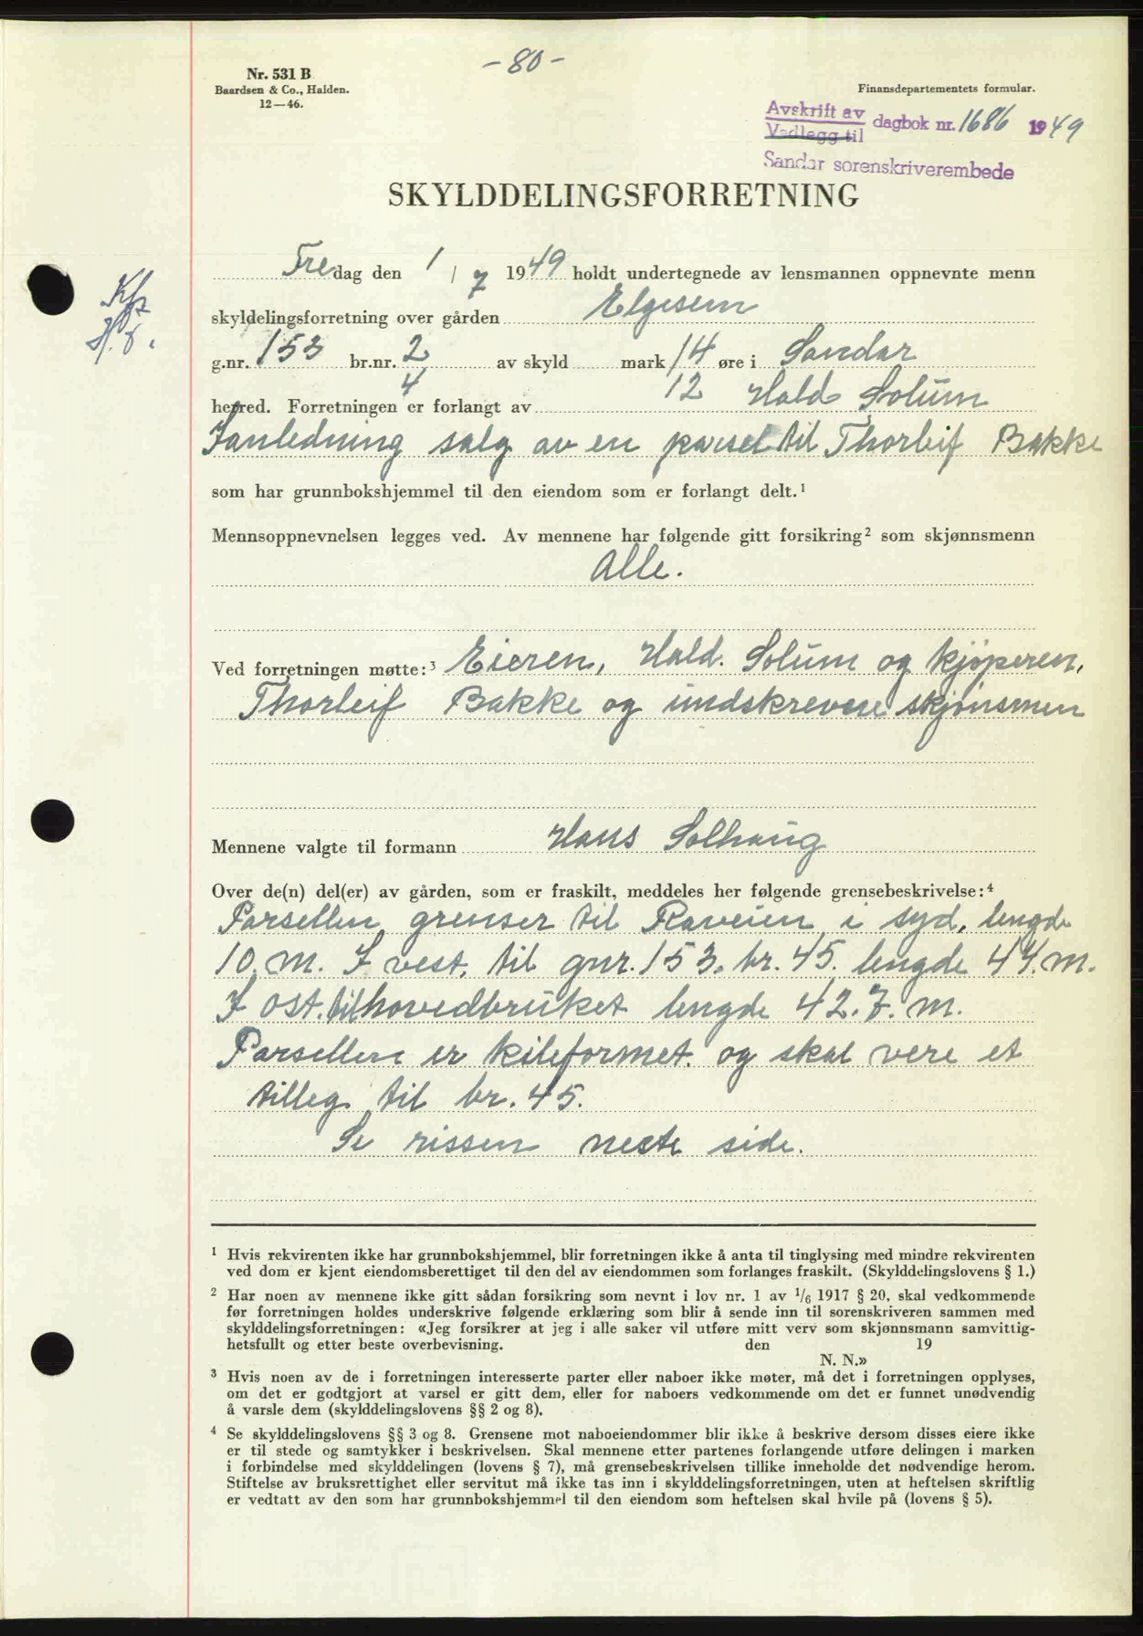 - 80 -
Nr. 531 B
Baardsen & Co., Halden.
12—46.
Finansdepartementets formular.
Avskrift av
Vedlegg til
dagbok nr. 1686 1949
Sandar sorenskriverembede
SKYLDDELINGSFORRETNING
Fredag den 1/7 1949 holdt undertegnede av lensmannen oppnevnte menn
skylddelingsforretning over gården Elgesem
g.nr. 153 br.nr. 2 av skyld mark 14 øre i Sandar
4 12
herred. Forretningen er forlangt av Hald. Solum
I anledning salg av en parsel til Thorleif Bakke
som har grunnbokshjemmel til den eiendom som er forlangt delt.¹
Mennsoppnevnelsen legges ved. Av mennene har følgende gitt forsikring² som skjønnsmenn
Alle.
Ved forretningen møtte:³ Eieren, Hald. Solum og kjøperen,
Thorleif Bakke og undskrevne skjønsmen
Mennene valgte til formann Hans Solhaug
Over de(n) del(er) av gården, som er fraskilt, meddeles her følgende grensebeskrivelse:⁴
Parsellen grenser til Raveien i syd, lengde
10 m. I vest, til gnr. 153. br. 45. lengde 44. m.
I ost. til hovedbruket lengde 42.7. m.
Parsellen er kileformet. og skal vere et
tilleg til br. 45.
Se rissen neste side.
¹ Hvis rekvirenten ikke har grunnbokshjemmel, blir forretningen ikke å anta til tinglysing med mindre rekvirenten
ved dom er kjent eiendomsberettiget til den del av eiendommen som forlanges fraskilt. (Skylddelingslovens § 1.)
² Har noen av mennene ikke gitt sådan forsikring som nevnt i lov nr. 1 av ¹/₆ 1917 § 20, skal vedkommende
før forretningen holdes underskrive følgende erklæring som blir å sende inn til sorenskriveren sammen med
skylddelingsforretningen: «Jeg forsikrer at jeg i alle saker vil utføre mitt verv som skjønnsmann samvittig-
hetsfullt og etter beste overbevisning. den 19
N. N.»
³ Hvis noen av de i forretningen interesserte parter eller naboer ikke møter, må det i forretningen opplyses,
om det er godtgjort at varsel er gitt dem, eller for naboers vedkommende om det er funnet unødvendig
å varsle dem (skylddelingslovens §§ 2 og 8).
⁴ Se skylddelingslovens §§ 3 og 8. Grensene mot naboeiendommer blir ikke å beskrive dersom disses eiere ikke
er til stede og samtykker i beskrivelsen. Skal mennene etter partenes forlangende utføre delingen i marken
i forbindelse med skylddelingen (lovens § 7), må grensebeskrivelsen tillike inneholde det nødvendige herom.
Stiftelse av bruksrettighet eller servitut må ikke tas inn i skylddelingsforretningen, uten at heftelsen skriftlig
er vedtatt av den som har grunnbokshjemmel til den eiendom som heftelsen skal hvile på (lovens § 5).